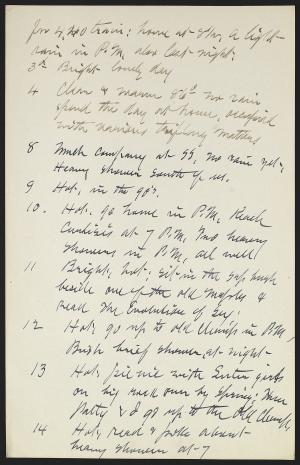 for 4.20 train; home at 8 hr, a light
rain in P.M. also last night.
3rd Bright lovely day
4 Clear & warm 82° no rain
spend the day at home, occupied
with various trifling matters
8 Much company at SS, no rain yet,
Heavy shower south of us.
9 Hot, in the 90s.
10. Hot, go home in P.M. Reach
at 7 P.M. Two heavy
showers in P.M, all well
11 Bright, hot, sit in the sap bush
beside one of the old maples &
read The Evolution of Sex.
12 Hot, go up to old Clump in P.M,
Brisk brief shower at night
13 Hot, picnic with girls
on big rock over by Spring;
& I go up to the Old Clump,
14 Hot, read & about
heavy shower at 7